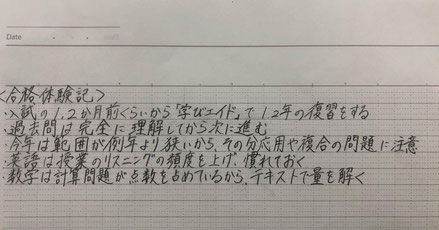 Date
<合格体験記>
・入試の1,2か月前くらいから「学びエイド」で1.2年の復習をする
・過去問は完全に理解してから次に進む
・今年は範囲が例年より狭いから、その分応用や複合の問題に注意
・英語は授業のリスニングの頻度を上げ、慣れておく
・数学は計算問題が点数を占めているから、テキストで量を解く